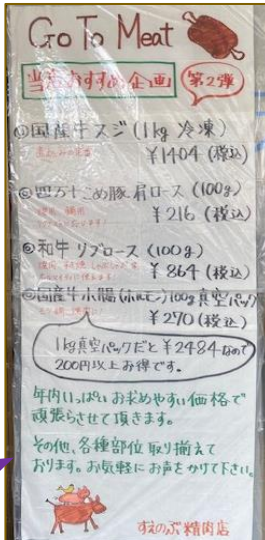 Go To Meat
当店おすすめ企画 第2弾
①国産牛スジ(1kg 冷凍)
¥1404(税込)
②四万十こめ豚 肩ロース(100g)
¥216(税込)
③和牛リブロース(100g)
¥864(税込)
④国産牛小腸(ホルモン)100g真空パック
¥270(税込)
1kg真空パックだと¥2484なので
200円以上お得です。
年内いっぱいお求めやすい価格で
頑張らさせて頂きます。
その他、各種部位取り揃えて
おります。お気軽にお声をかけて下さい。
すえのぶ精肉店